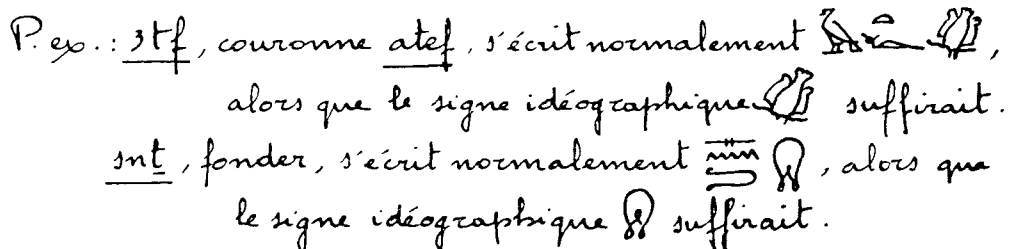 P. ex. : ꜣtf, couronne atef, s'écrit normalement 𓄿𓏏𓆑,
alors que le signe idéographique suffirait.
snṯ, fonder, s'écrit normalement 𓊃𓈖𓍿, alors que
le signe idéographique suffirait.